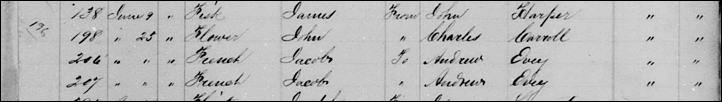 138 June 9 " Fisk James From John Harper " "
196
198 " 25 " Flower John " Charles Carroll " "
206 " " " French Jacob To Andrew Evey " "
207 " " " French Jacob " Andrew Evey " "